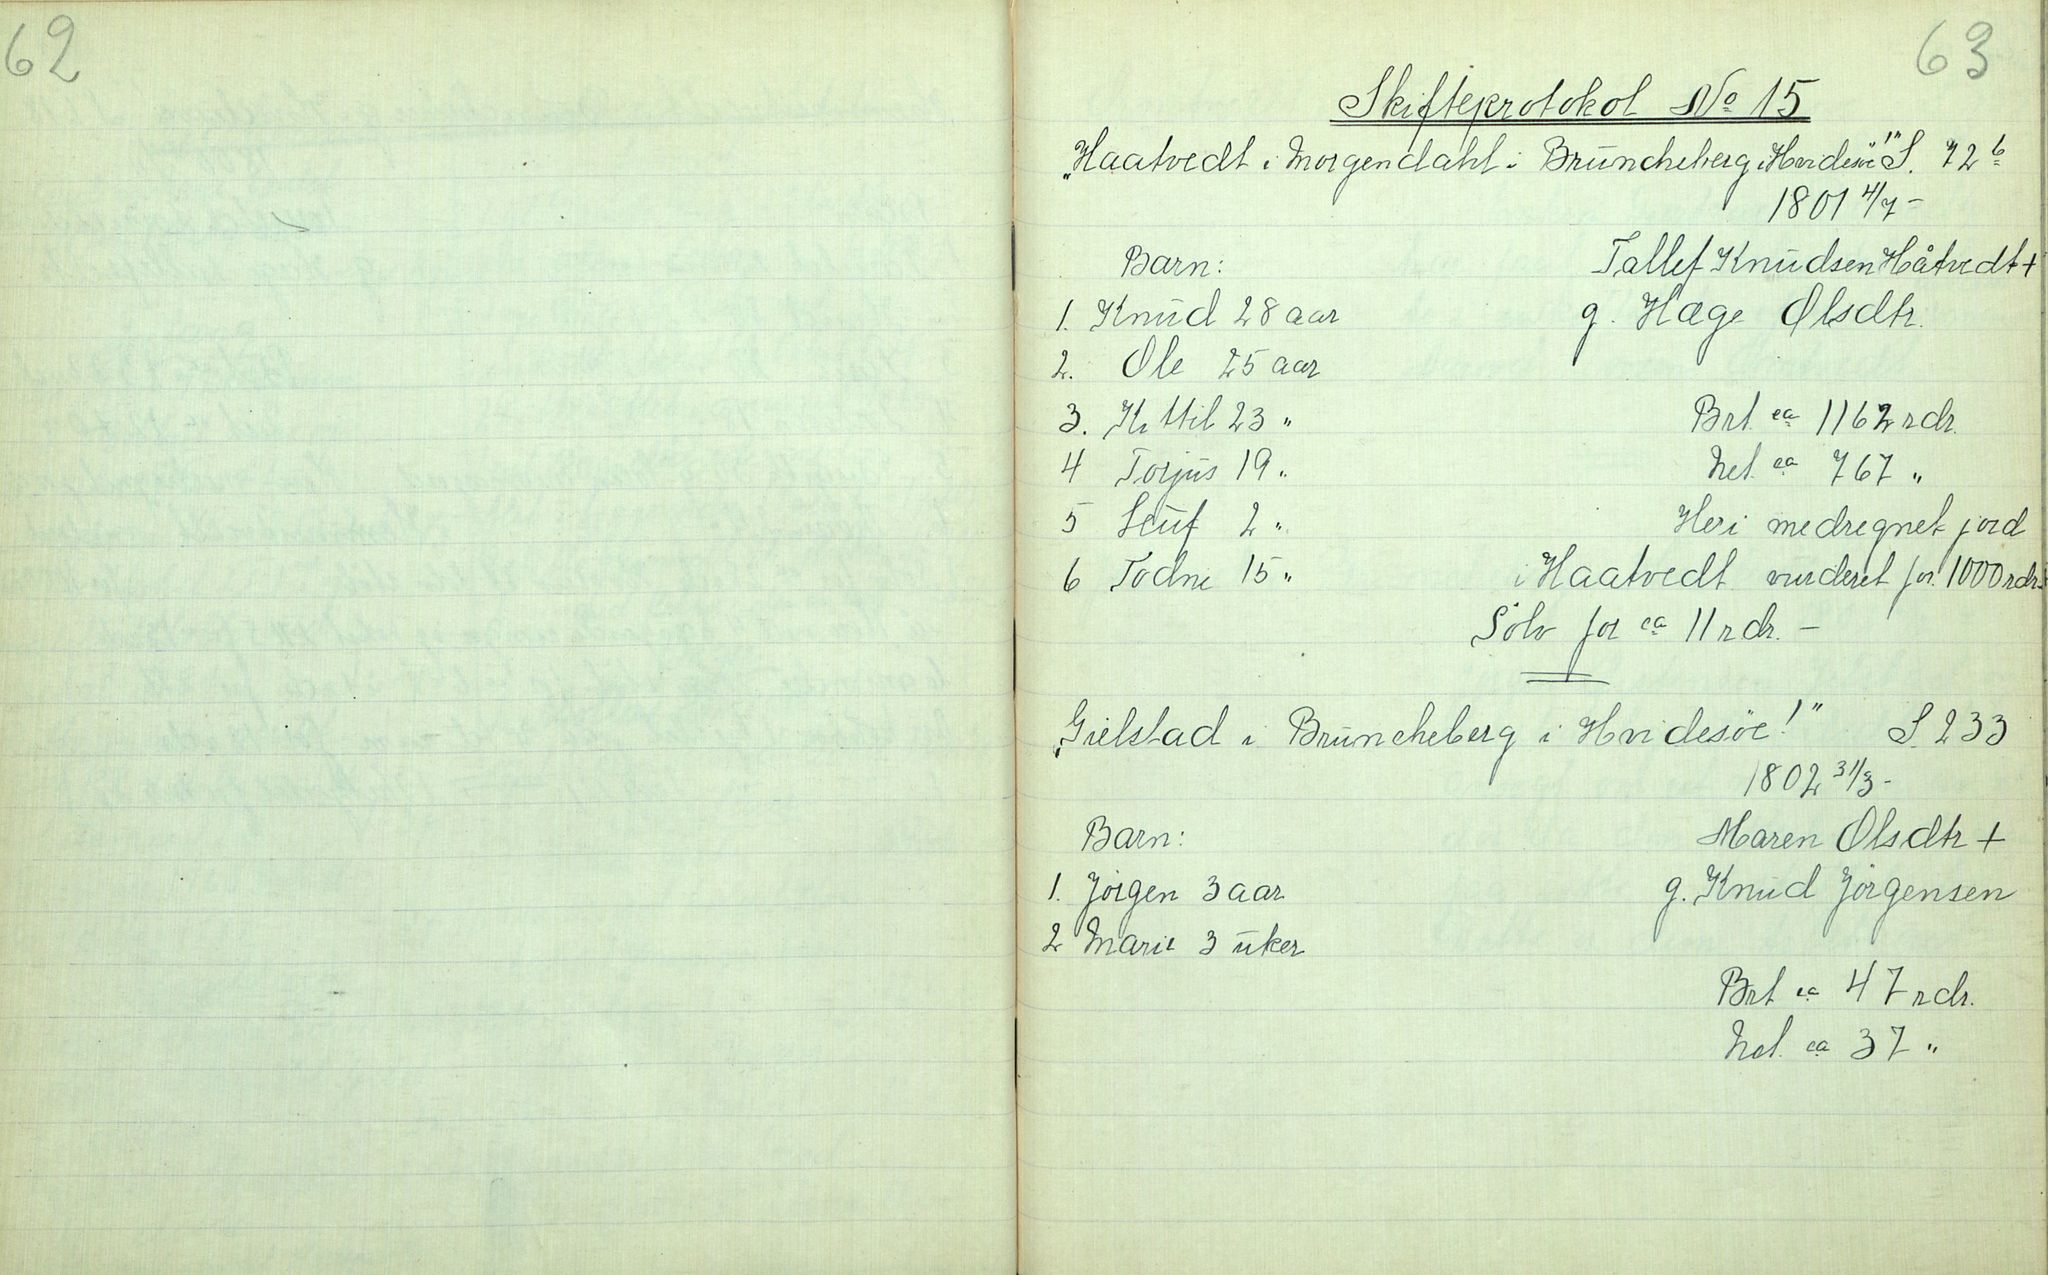 62
63
Skifteprotokol No 15
"Haatvedt i Morgendahl i Bruncheberg i Hvidesöe!" S. 72 b
1801 4/7 -
Barn: Tallef Knudsen Håtvedt +
1. Knud 28 aar g. Hæge Olsdtr.
2. Ole 25 aar
3. Kittil 23 " Brt. ca 1162 rdr.
4 Torjus 19 " Net. ca 767 "
5 Leuf 2 " Heri medregnet jord
6 Todne 15 " i Haatvedt vurderet for 1000 rdr.
Sölv for ca 11 rdr. -
"Gielstad i Bruncheberg i Hvidesöe!" S. 233
1802 31/3 -
Barn: Maren Olsdtr +
1. Jörgen 3 aar g. Knud Jörgensen
2 Marie 3 uker
Brt ca 47 rdr.
Net. ca 37 "